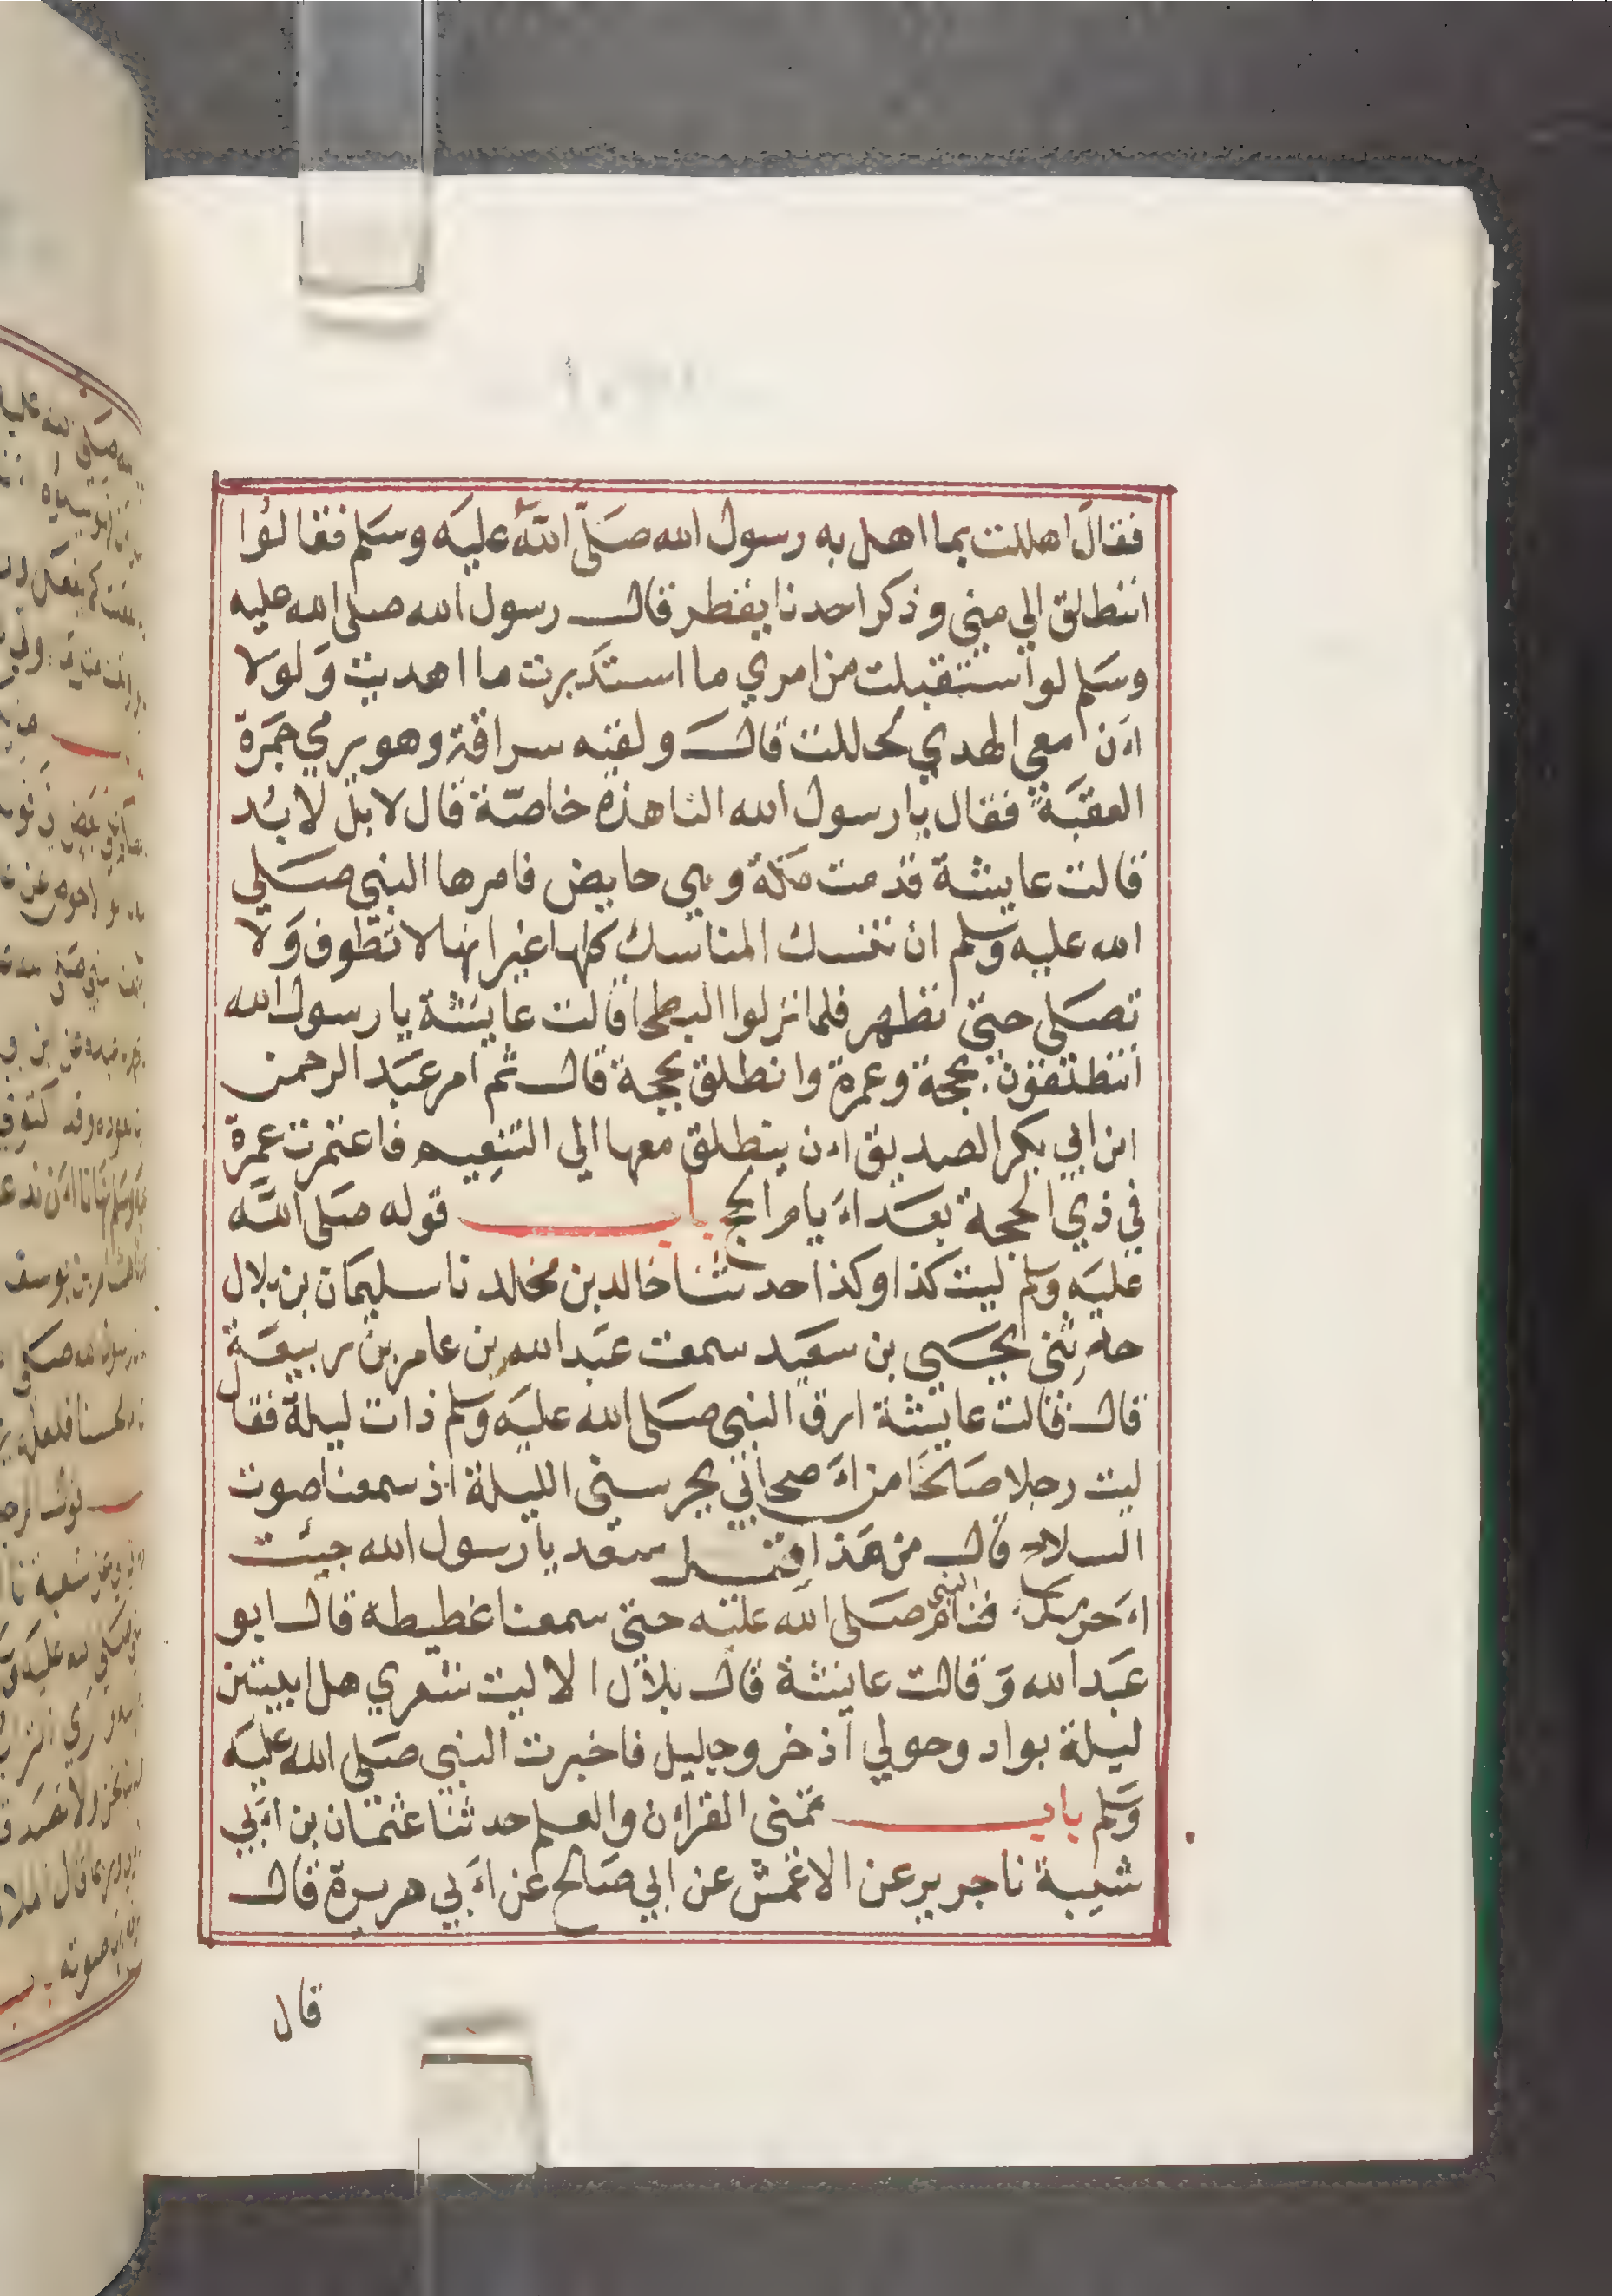 فقال اهللت بما اهل به رسول الله صَلّى اللّه عليَه وسَلم فقالوُا
اننطلق الي مني وذكر احدنا يقطر قال رسول الله صلى الله عليه
وسَلم لو استقبلت من امري ما استدَبرت ما اهديت وَلولا
ان معي الهدي لحللت قال ولقيه سراقة وهو يرمي جمَرة
العقبَة فقال يا رسول الله النا هذه خاصّة قال لا بل لابُد
قالت عايشة قدمت مَكة وهي حايض فامرها النبي صَلي
الله عليه وسلم ان تنسك المناسك كلها غير انها لا تطوف وَلا
تصَلى حتي تطهر فلما نزلوا البطحا قالت عايشَة يا رسول الله
اتنطلقون بحجة وعمرة وانطلق بحجة قال ثم امر عبَد الرحمن
ابن ابي بكر الصديق ان ينطلق معها الي التنعيم فاعتمرت عمرَة
في ذي الحجة بعَد ايام الحج باب قوله صَلى اللّه
عليَه وسلم ليت كذا وكذا حدثنا خالد بن مخلد نا سليمَان بن بلال
حدثني يحيَي بن سعَيد سمعت عبَد الله بن عامر بن ربيعَة
قال قالت عايشة ارق النبي صَلى الله عليَه وسلم ذات ليلة فقال
ليت رجلا صَالحَا من اصحابي يحرسني الليلة اذ سمعنا صوت
السلاح قال من هَذا قيل سعد يا رسول الله جيئت
احرسك فنام النبي صَلى الله عليَه حتي سمعنا غطيطه قال ابو
عبَد الله وَقالت عايشة قال بلال الا ليت شعري هل ابيتن
ليلة بواد وحولي اذخر وجليل فاخبرت النبي صَلى الله عليَه
وَسَلم باب تمني القران والعلم حدثنا عثمَان بن ابَي
شَيبة نا جرير عن الاعمش عن ابي صَالح عن ابَي هريرة قال
قال